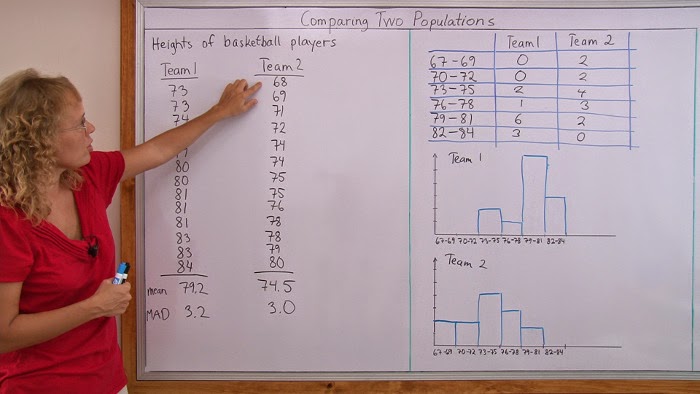 Comparing Two Populations
Heights of basketball players
Team 1
73
73
74
80
80
81
81
81
83
83
84
Team 2
68
69
71
72
74
74
75
75
76
78
78
79
80
mean 79.2 74.5
MAD 3.2 3.0
Team 1 Team 2
67-69 0 2
70-72 0 2
73-75 2 4
76-78 1 3
79-81 6 2
82-84 3 0
Team 1
67-69 70-72 73-75 76-78 79-81 82-84
Team 2
67-69 70-72 73-75 76-78 79-81 82-84